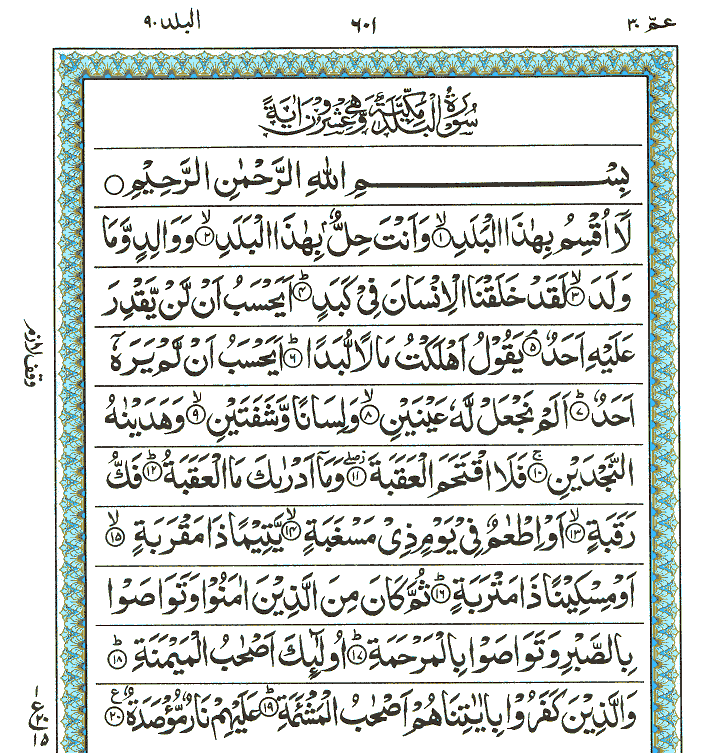 عمّ ٣٠ ٦٠١ البلد ٩٠
سُوْرَةُ الْبَلَدِ مَكِّيَّةٌ وَّهِيَ عِشْرُوْنَ اٰيَةً
بِسْمِ اللهِ الرَّحْمٰنِ الرَّحِيْمِ ○
لَآ اُقْسِمُ بِهٰذَا الْبَلَدِ ۙ﴿١﴾ وَاَنْتَ حِلٌّۢ بِهٰذَا الْبَلَدِ ۙ﴿٢﴾ وَوَالِدٍ وَّمَا
وَلَدَ ۙ﴿٣﴾ لَقَدْ خَلَقْنَا الْاِنْسَانَ فِيْ كَبَدٍ ؕ﴿٤﴾ اَيَحْسَبُ اَنْ لَّنْ يَّقْدِرَ
عَلَيْهِ اَحَدٌ ۘ﴿٥﴾ يَقُوْلُ اَهْلَكْتُ مَالًا لُّبَدًا ؕ﴿٦﴾ اَيَحْسَبُ اَنْ لَّمْ يَرَهٗٓ
اَحَدٌ ؕ﴿٧﴾ اَلَمْ نَجْعَلْ لَّهٗ عَيْنَيْنِ ۙ﴿٨﴾ وَلِسَانًا وَّشَفَتَيْنِ ۙ﴿٩﴾ وَهَدَيْنٰهُ
النَّجْدَيْنِ ۚ﴿١٠﴾ فَلَا اقْتَحَمَ الْعَقَبَةَ ﴿١١﴾ وَمَآ اَدْرٰىكَ مَا الْعَقَبَةُ ؕ﴿١٢﴾ فَكُّ
رَقَبَةٍ ۙ﴿١٣﴾ اَوْ اِطْعٰمٌ فِيْ يَوْمٍ ذِيْ مَسْغَبَةٍ ۙ﴿١٤﴾ يَّتِيْمًا ذَا مَقْرَبَةٍ ۙ﴿١٥﴾
اَوْ مِسْكِيْنًا ذَا مَتْرَبَةٍ ؕ﴿١٦﴾ ثُمَّ كَانَ مِنَ الَّذِيْنَ اٰمَنُوْا وَتَوَاصَوْا
بِالصَّبْرِ وَتَوَاصَوْا بِالْمَرْحَمَةِ ؕ﴿١٧﴾ اُولٰٓئِكَ اَصْحٰبُ الْمَيْمَنَةِ ؕ﴿١٨﴾
وَالَّذِيْنَ كَفَرُوْا بِاٰيٰتِنَا هُمْ اَصْحٰبُ الْمَشْـَٔمَةِ ؕ﴿١٩﴾ عَلَيْهِمْ نَارٌ مُّؤْصَدَةٌ ۠﴿٢٠﴾
وقف لازم
١
ع
٢٠
١٥